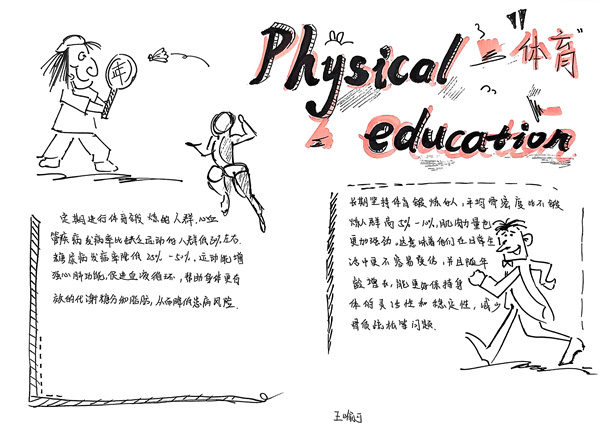 Physical "体育"
education
定期进行体育锻炼的人群,心血
管疾病发病率比缺乏运动的人群低3%左右.
糖尿病发病率降低25%-50%,运动能增
强心肺功能,促进血液循环,帮助身体更有
效的代谢糖分和脂肪,从而降低患病风险.
长期坚持体育锻炼的人,平均骨密度比不锻
炼人群高5%-10%,肌肉力量也
更加强劲,这意味着他们在日常生
活中更不容易受伤,并且随年
龄增长,能更好保持身
体的灵活性和稳定性,减少
骨质疏松等问题.
王喻可